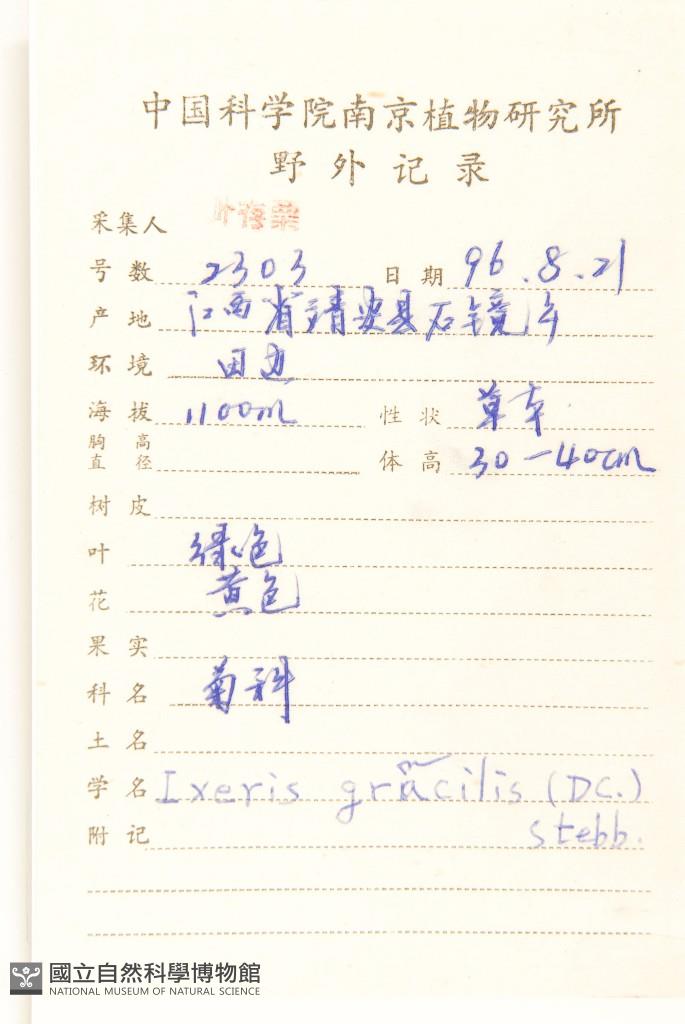 中国科学院南京植物研究所
野外记录
采集人 叶存粟
号数 2303 日期 96.8.21
产地 江西省靖安县石镜乡
环境 田边
海拔 1100m 性状 草本
胸高直径 体高 30-40cm
树皮
叶 绿色
花 黄色
果实
科名 菊科
土名
学名 Ixeris gracilis (DC.)
附记 stebb.
國立自然科學博物館
NATIONAL MUSEUM OF NATURAL SCIENCE